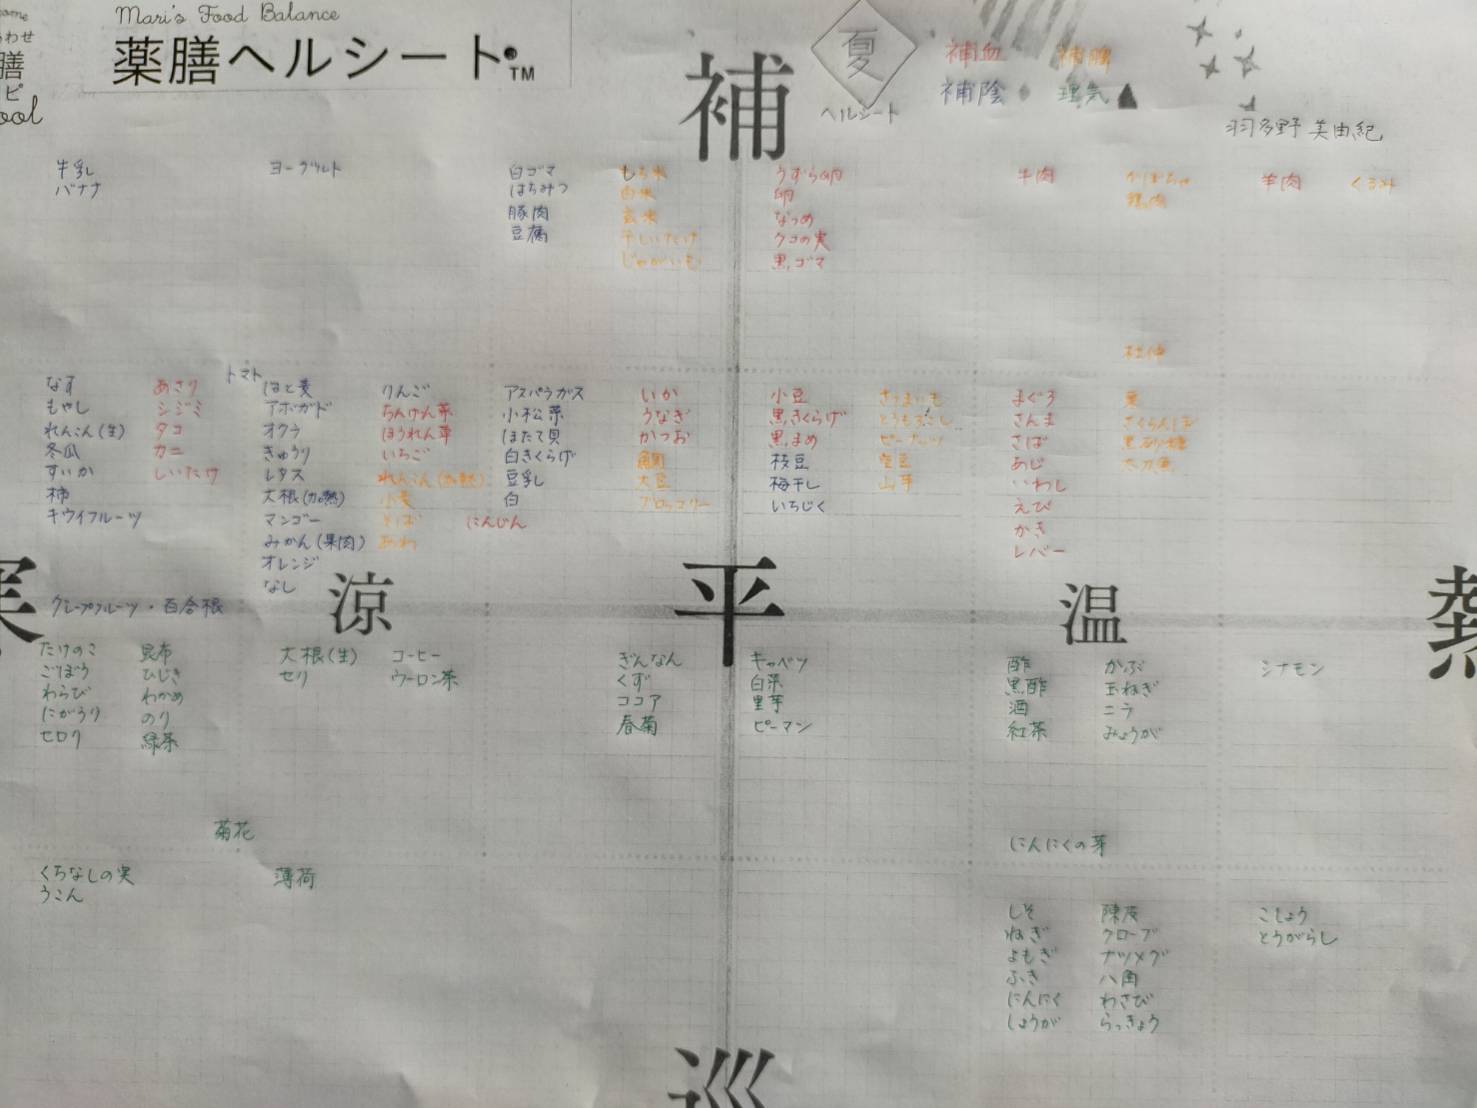 Mari's Food Balance
わせ
膳
ピ
ool
薬膳ヘルシート TM
補
夏
ヘルシート
補血 補脾
補陰 理気
羽多野 美由紀
牛乳
バナナ
ヨーグルト
白ゴマ
はちみつ
豚肉
豆腐
もち米
白米
玄米
干しいたけ
じゃがいも
うずら卵
卵
なつめ
クコの実
黒ゴマ
牛肉
かぼちゃ
鶏肉
羊肉
くるみ
杜仲
なす
もやし
れんこん(生)
冬瓜
すいか
柿
キウイフルーツ
グレープフルーツ・百合根
あさり
シジミ
タコ
カニ
しいたけ
トマト
はと麦
アボガド
オクラ
きゅうり
レタス
大根(加熱)
マンゴー
みかん(果肉)
オレンジ
なし
りんご
ちんげん菜
ほうれん草
いちご
れんこん(加熱)
小麦
そば
あわ
にんじん
アスパラガス
小松菜
ほたて貝
白きくらげ
豆乳
白
いか
うなぎ
かつお
鯛
大豆
ブロッコリー
小豆
黒きくらげ
黒まめ
枝豆
梅干し
いちじく
さつまいも
とうもろこし
ピーナッツ
空豆
山芋
まぐろ
さんま
さば
あじ
いわし
えび
かき
レバー
栗
さくらんぼ
黒砂糖
太刀魚
涼
平
温
熱
たけのこ
ごぼう
わらび
にがうり
セロリ
昆布
ひじき
わかめ
のり
緑茶
大根(生)
セリ
コーヒー
ウーロン茶
ぎんなん
くず
ココア
春菊
キャベツ
白菜
里芋
ピーマン
酢
黒酢
酒
紅茶
かぶ
玉ねぎ
ニラ
みょうが
シナモン
菊花
にんにくの芽
くちなしの実
うこん
薄荷
しそ
ねぎ
よもぎ
ふき
にんにく
しょうが
陳皮
クローブ
ナツメグ
八角
わさび
らっきょう
こしょう
とうがらし
巡